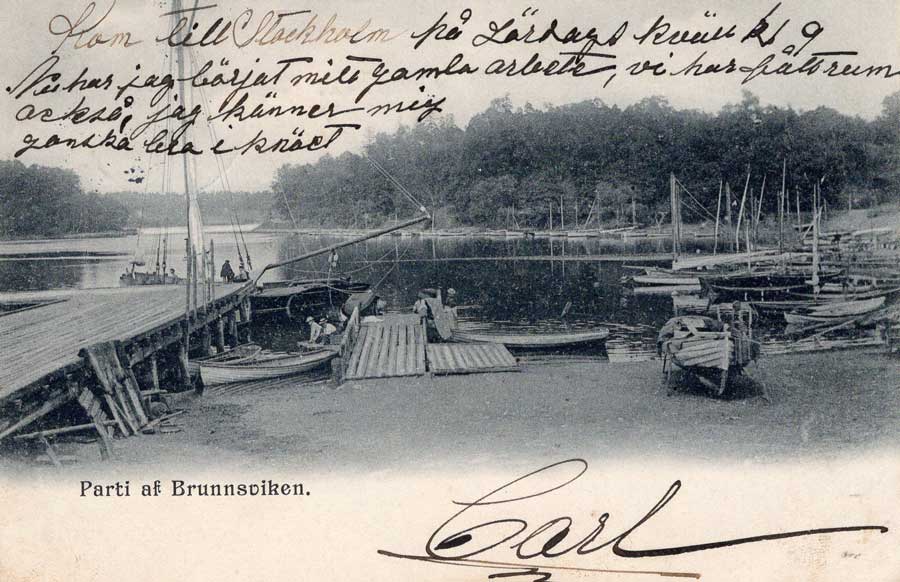 Kom till Stockholm på Lördags kväll kl 9
Nu har jag börjat mitt gamla arbete, vi har fått rum
också, jag känner mig
ganska bra i knäet
Parti af Brunnsviken.
Carl